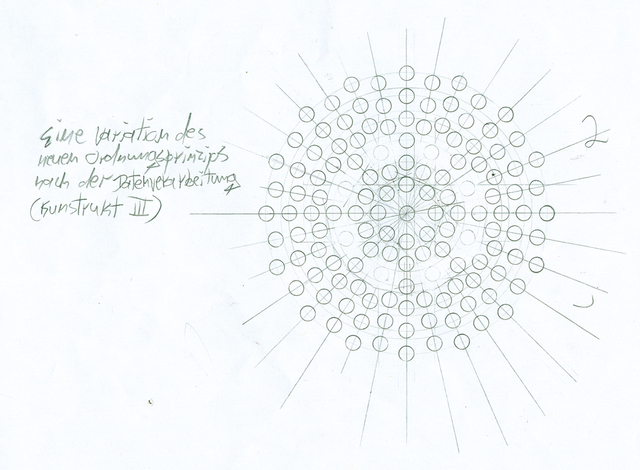 Eine Variation des
neuen Ordnungsprinzips
nach der Datenverarbeitung
(Kunstrukt III)
2